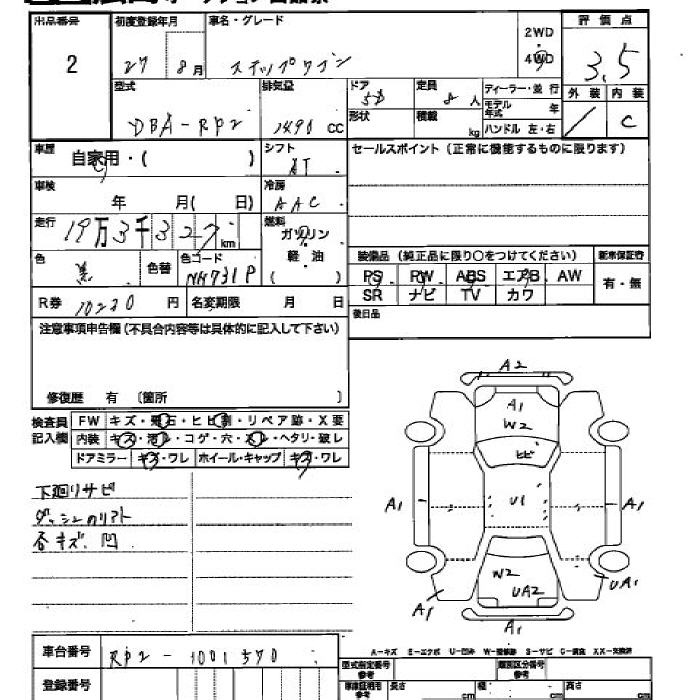 出品番号 初度登録年月 車名・グレード 2WD 評価点
2 27 8月 ステップワゴン 4WD 3.5
型式 排気量 ドア 定員 ディーラー・並行 外装 内装
DBA-RP2 1490 CC 5D 8人 モデル年式 年
形状 積載 kg ハンドル 左・右 / C
車歴 自家用・( ) シフト AT セールスポイント(正常に機能するものに限ります)
車検 年 月( 日) 冷房 AAC
走行 19万3千327km 燃料 ガソリン
軽油
( )
装備品(純正品に限り○をつけてください) 新車保証書
色 黒 色替 色コード NH731P
PS PW ABS エアB AW 有・無
SR ナビ TV カワ
R券 10230円 名変期限 月 日
後日品
注意事項申告欄(不具合内容等は具体的に記入して下さい)
修復歴 有 〔箇所 〕
検査員記入欄 FW キズ・飛石・ヒビ割・リペア跡・X要
内装 キズ・汚レ・コゲ・穴・スレ・ヘタリ・破レ
ドアミラー キズ・ワレ ホイール・キャップ キズ・ワレ
下廻リサビ
各キズ、凹
A2
A1
W2
ヒビ
A1 U1 A1
W2
UA2 UA1
A1
A1
A-キズ E-エクボ U-凹み W-補修跡 S-サビ C-腐食 XX-交換済
車台番号 RP2-1001570
型式指定番号 参考 類別区分番号 参考
登録番号
車庫証明用 参考 長さ cm 幅 cm 高さ cm